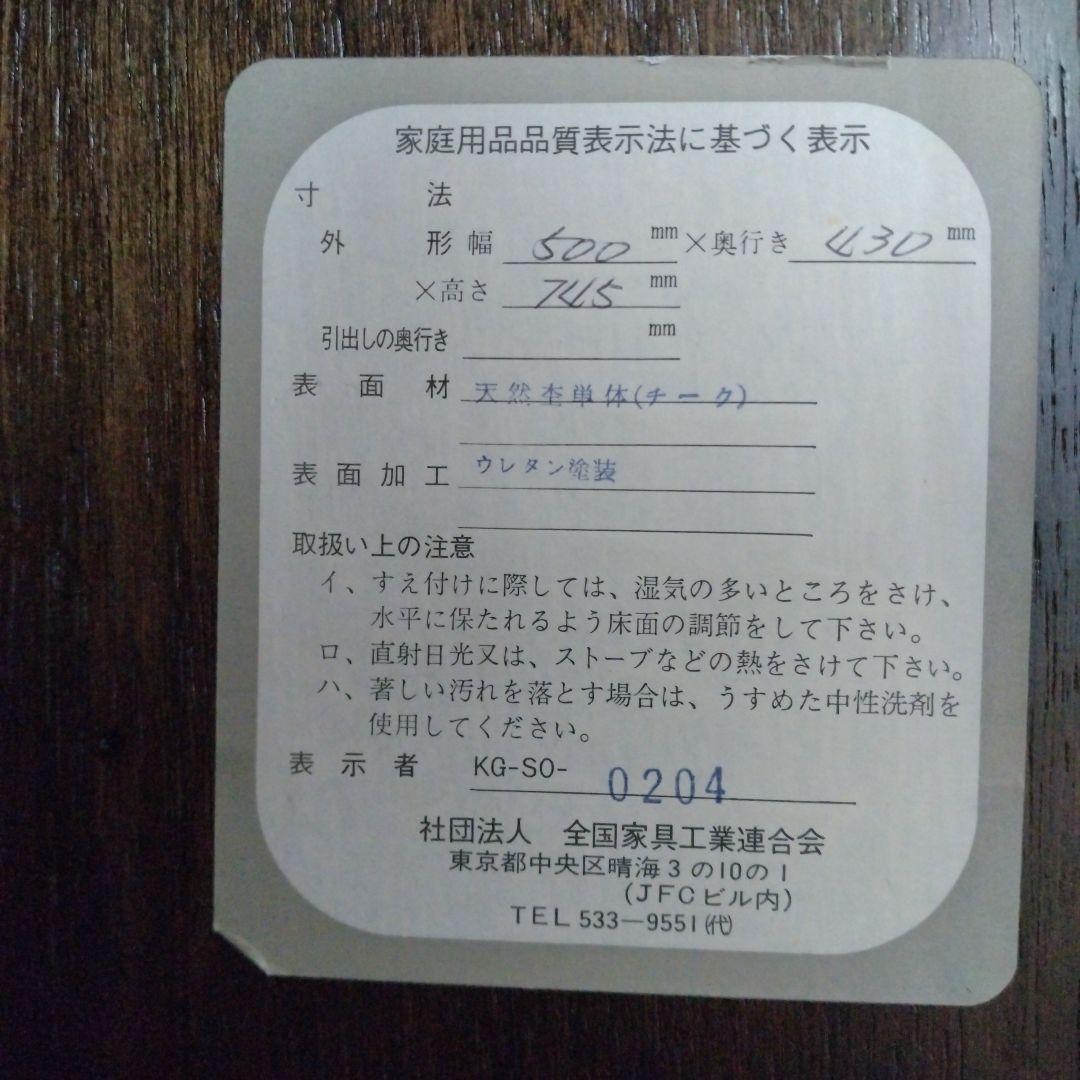 家庭用品品質表示法に基づく表示
寸法
外形 幅 500 mm ×奥行き 430 mm
×高さ 745 mm
引出しの奥行き mm
表面材 天然杢単体(チーク)
表面加工 ウレタン塗装
取扱い上の注意
イ、すえ付けに際しては、湿気の多いところをさけ、
水平に保たれるよう床面の調節をして下さい。
ロ、直射日光又は、ストーブなどの熱をさけて下さい。
ハ、著しい汚れを落とす場合は、うすめた中性洗剤を
使用してください。
表示者 KG-SO- 0204
社団法人 全国家具工業連合会
東京都中央区晴海3の10の1
(JFCビル内)
TEL 533—9551(代)